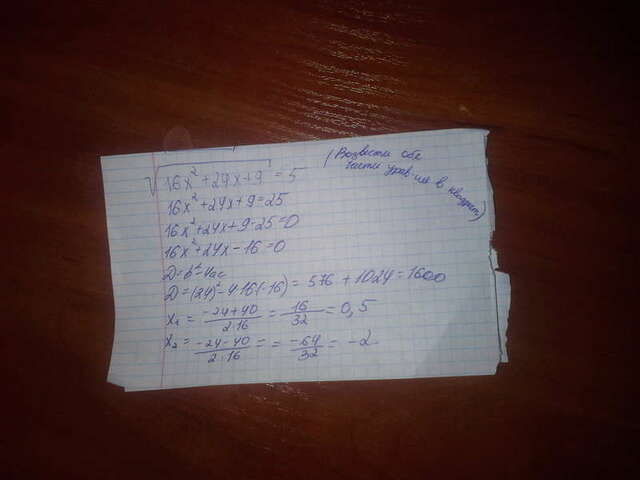 √16x²+24x+9 = 5
(Возвести обе
части урав-ия в квадрат)
16x²+24x+9=25
16x²+24x+9-25=0
16x²+24x-16=0
D=b²-4ac
D=(24)²-4·16(-16) = 576+1024=1600
x₁ = -24+40/2·16 = 16/32 = 0,5
x₂ = -24-40/2·16 = = -64/32 = -2